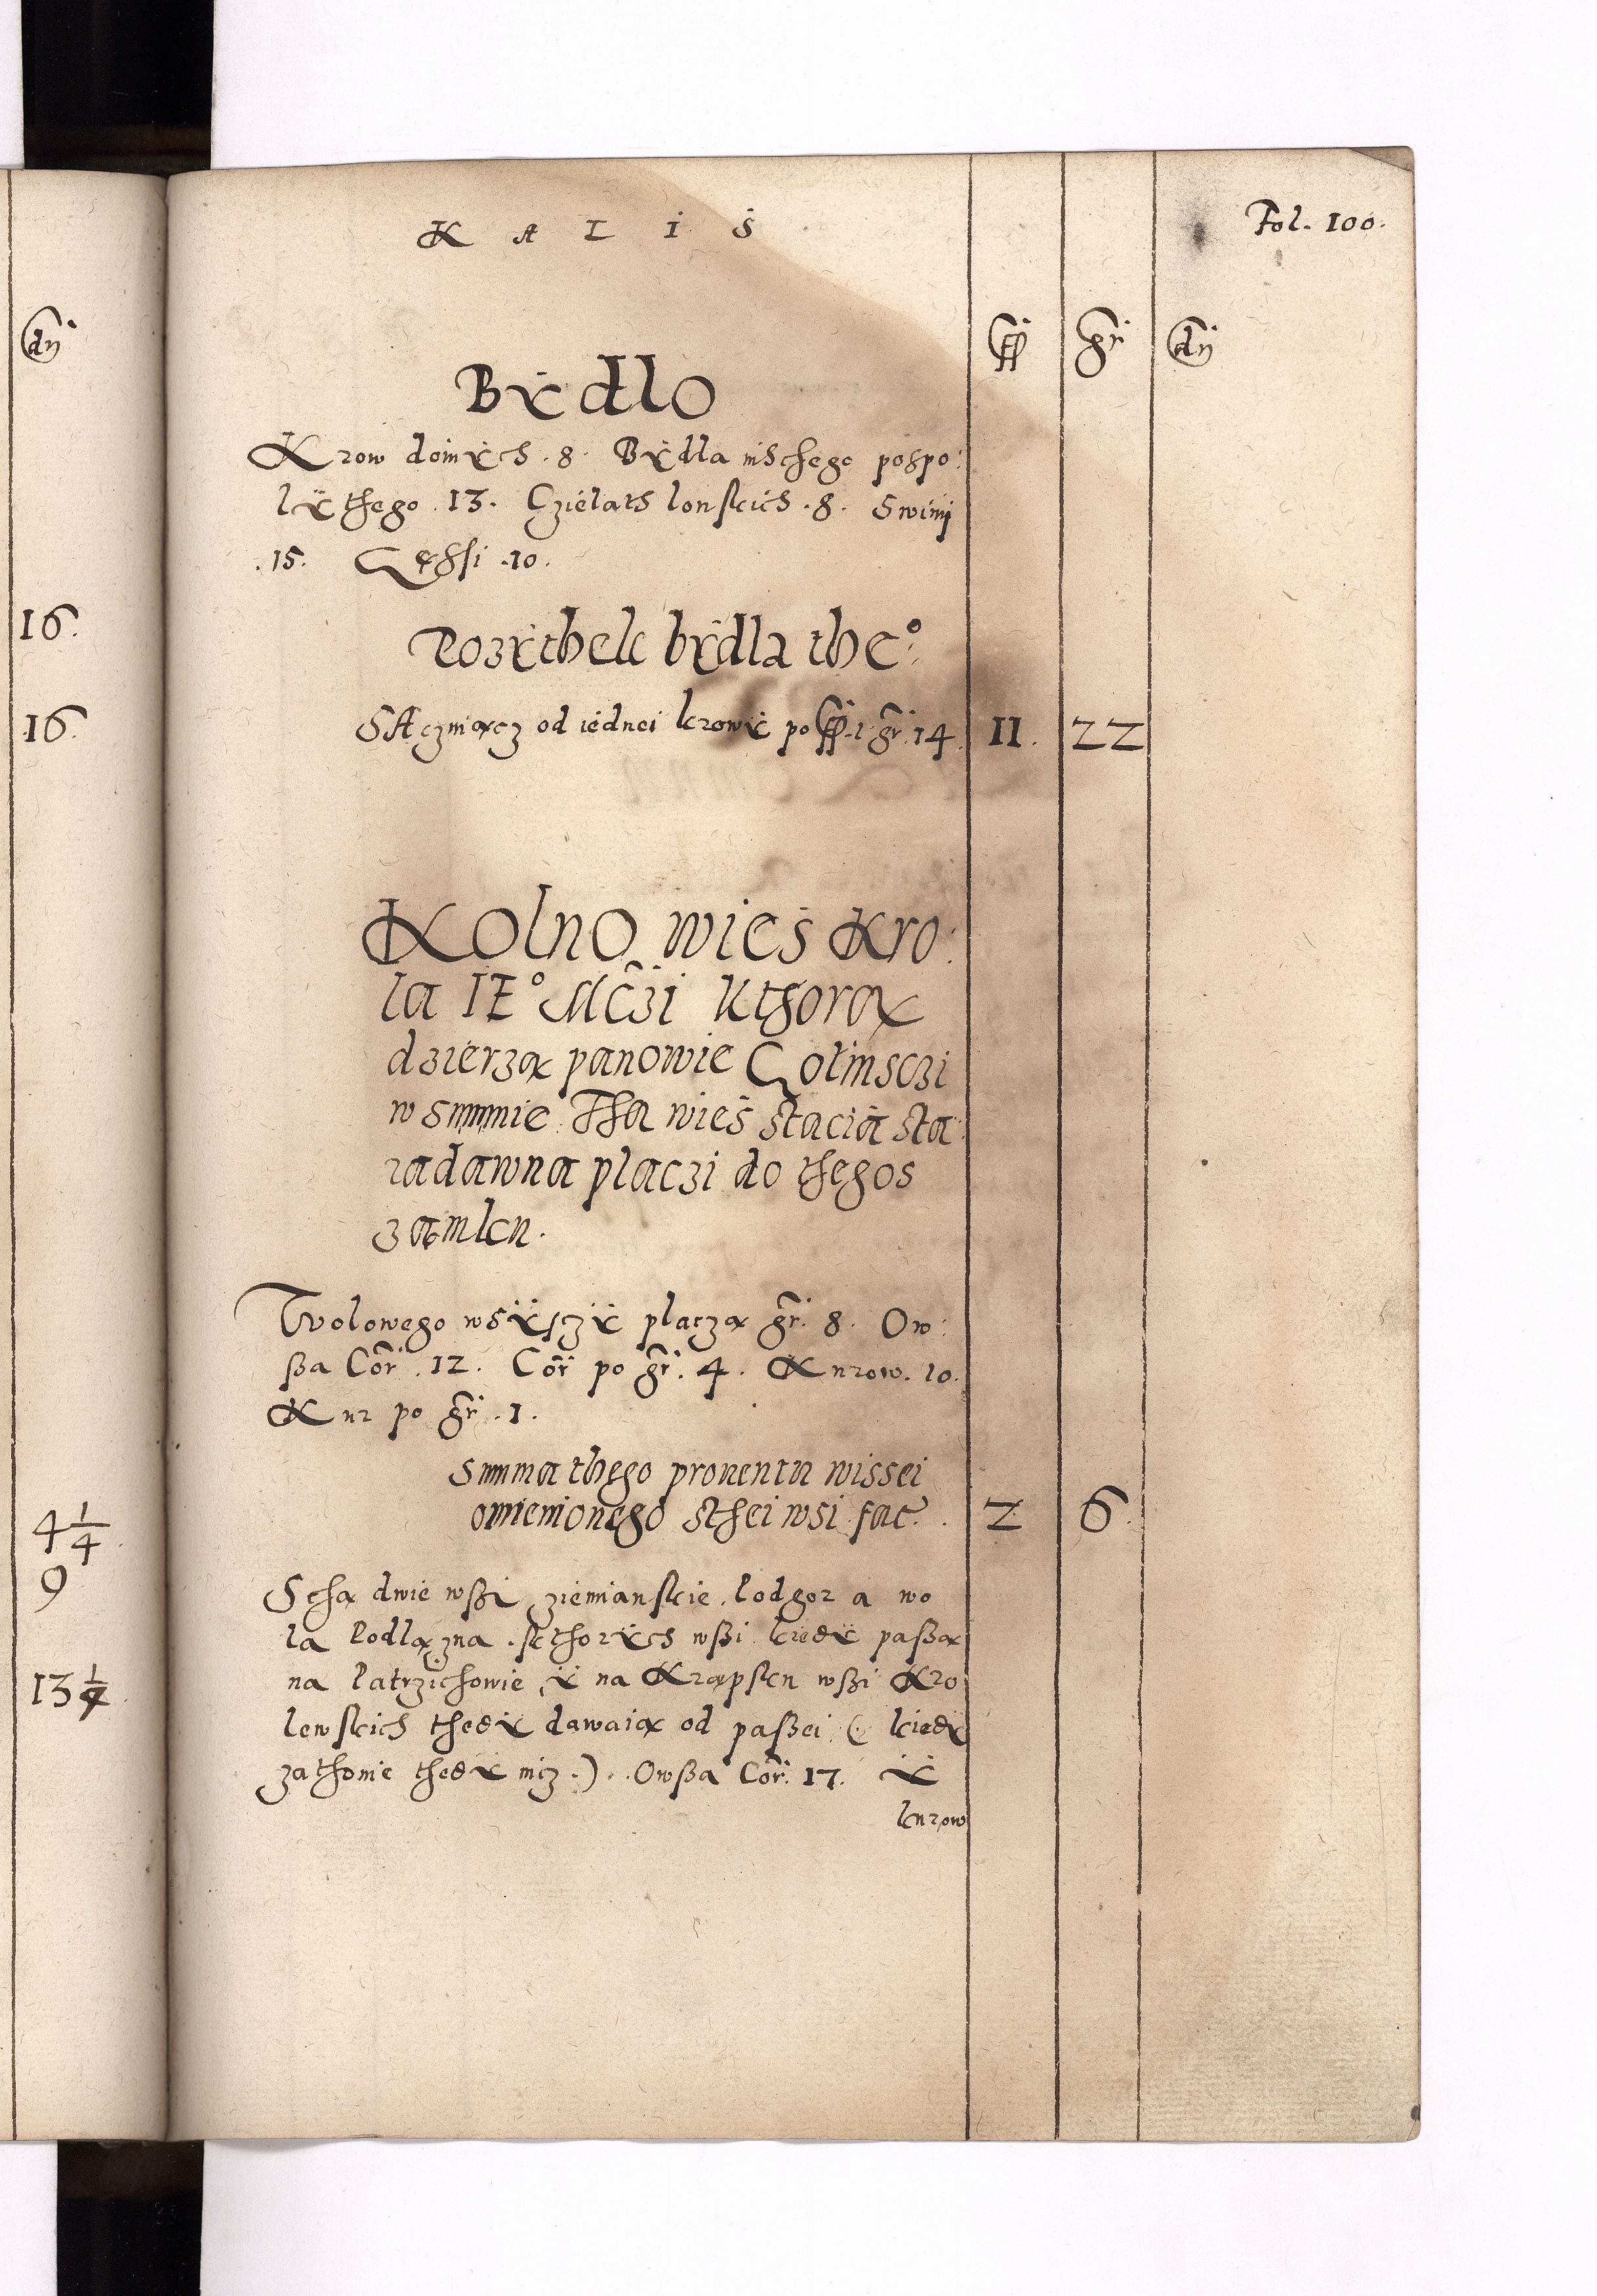 K A L I S
Fol. 100.
fl gr dn
dn
Bydlo
Krow doinych .8. Bydla inschego pospo:
lythego .13. Czielath lonskich .8. Swinij
.15. Gęssi .10.
Pozythek bydla the°:
SAczuiącz od iednei krowy po fl .1. gr .14. 11. 22
16.
16.
Kolno wieś Kro:
la IE° Mczi kthorą
dzierzą panowie Golinsczi
w summie Tha wieś stacią sta:
radawna placzi do thegos
zamku.
Wolowego wsyszczy placzą gr. 8. Ow:
ßa Cor .12. Cor po gr. 4. Kurow. 10.
Kur po gr .1.
Summa thego prouentu wissei
omienionego sthei wsi fac. 2 6.
4 1/4
9
Sthą dwie wßi ziemianskie. Podgor a wo
la Podlężna. skthorych wßi kiedy paßą
na Patrzichowie, y na Krąpsku wßi Kro
lewskich thedy dawaią od paßei (. kiedy
zathonie thedy nicz .). Owßa Cor. 17. y
kurow